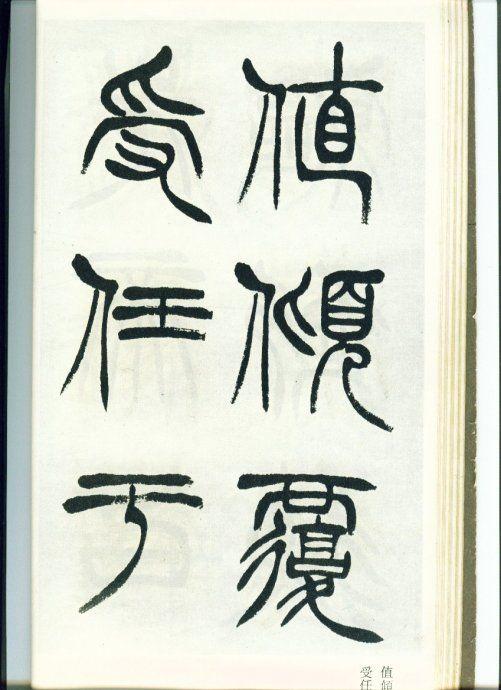 值傾覆
受任于
值傾
受任